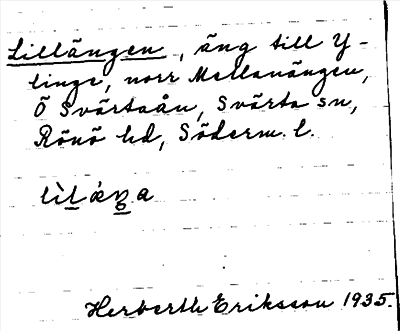 Lillängen, äng till Y-
linge, norr Mellanängen,
Ö Svärtaån, Svärta sn,
Rönö hd, Söderm. l.
Herberth Eriksson 1935.